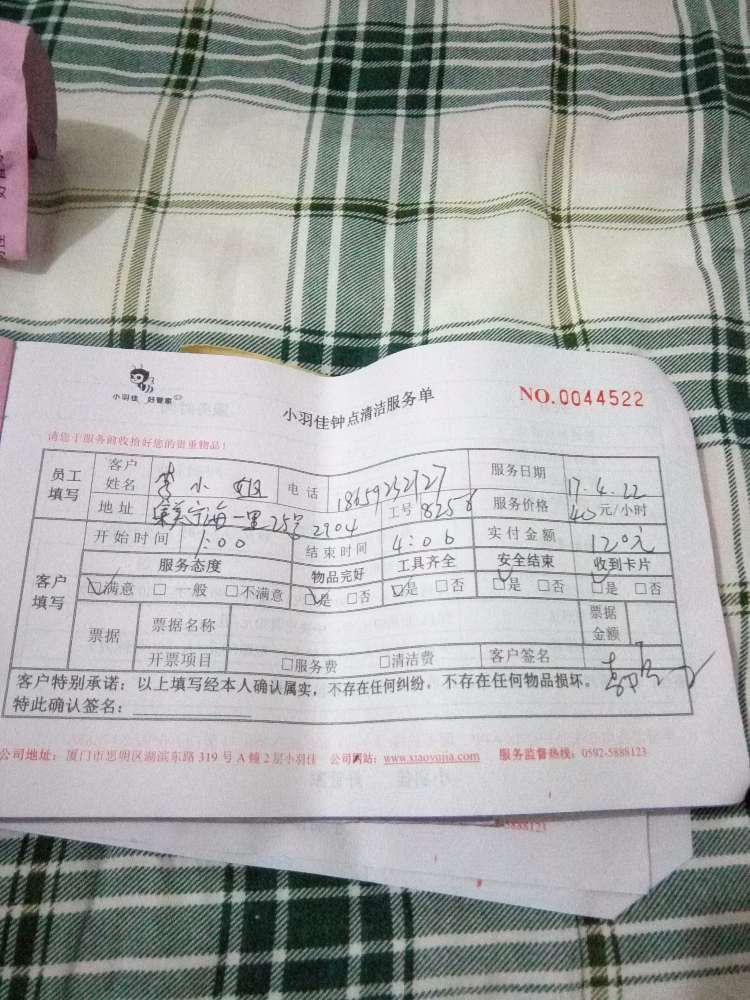 小羽佳 好管家
小羽佳钟点清洁服务单
NO.0044522
请您于服务前收拾好您的贵重物品!
员工填写 客户姓名 李小姐 电话 18659232727 服务日期 17.4.22
地址 集美宁海一里25号2904 工号 8258 服务价格 40元/小时
客户填写 开始时间 1:00 结束时间 4:00 实付金额 120元
服务态度 物品完好 工具齐全 安全结束 收到卡片
☑满意 □一般 □不满意 ☑是 □否 ☑是 □否 ☑是 □否 ☑是 □否
票据 票据名称 票据金额
开票项目 □服务费 □清洁费 客户签名
客户特别承诺:以上填写经本人确认属实,不存在任何纠纷,不存在任何物品损坏。
特此确认签名:
公司地址:厦门市思明区湖滨东路319号A幢2层小羽佳 公司网站:www.xiaoyujia.com 服务监督热线:0592-5888123
5888123